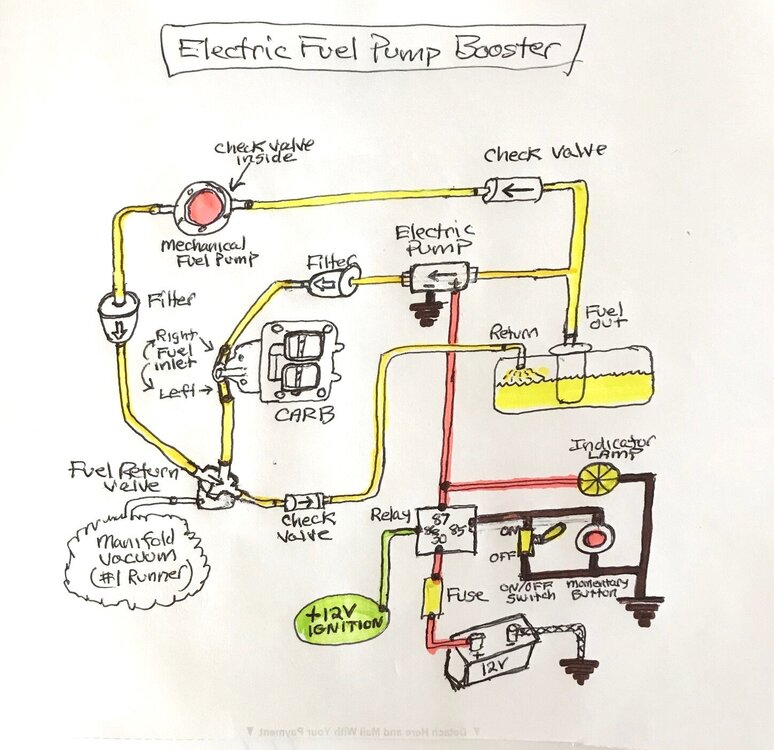 Electric Fuel Pump Booster
Check valve
inside
Check Valve
Mechanical
Fuel Pump
Electric
Pump
Filter
Filter
Fuel
out
Return
Right
Fuel
inlet
Left
CARB
Indicator
LAMP
Fuel Return
Valve
Check
Valve
Relay
87
86 85
30
ON
OFF
ON/OFF
Switch
Momentary
Button
Manifold
Vacuum
(#1 Runner)
Fuse
+12V
IGNITION
+ -
12V
▼ Detach Here and Mail With Your Payment ▼